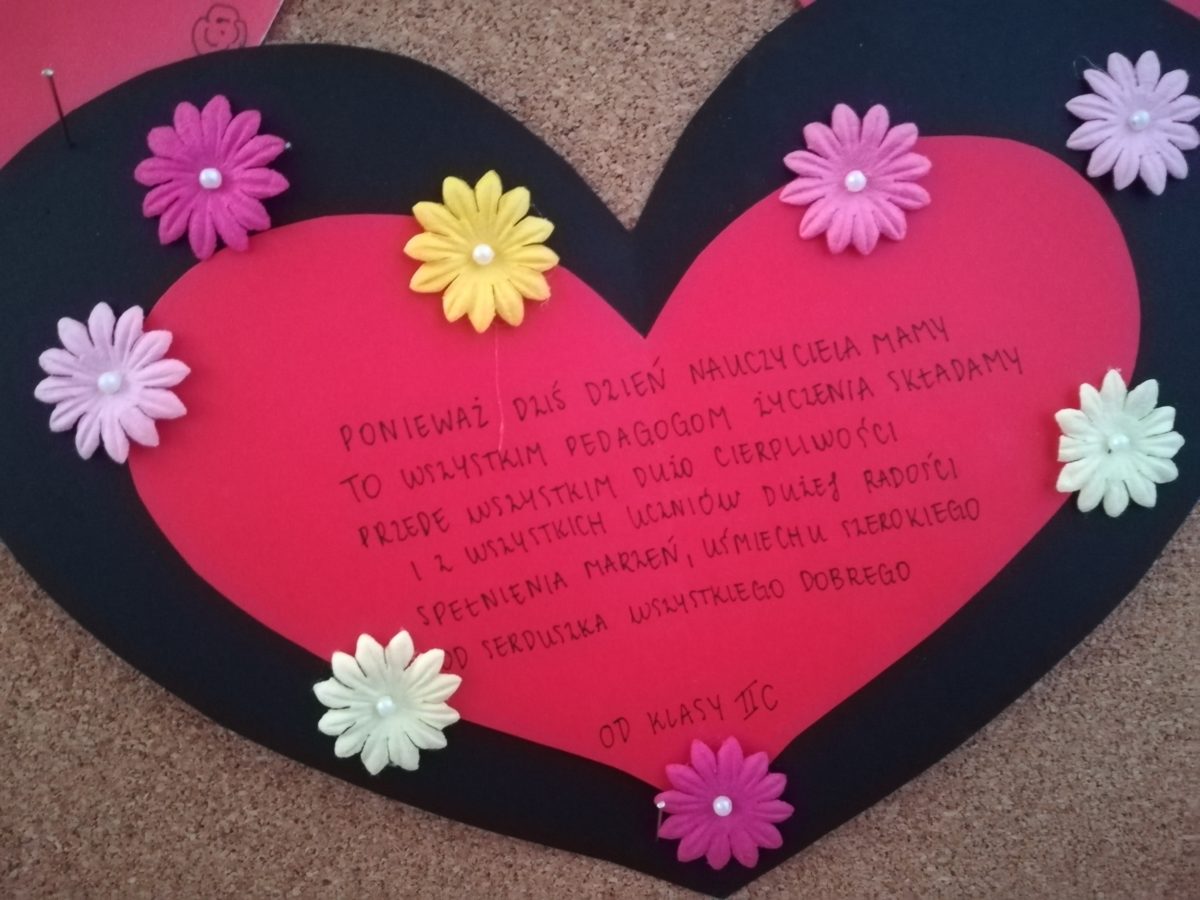 PONIEWAŻ DZIŚ DZIEŃ NAUCZYCIELA MAMY
TO WSZYSTKIM PEDAGOGOM ŻYCZENIA SKŁADAMY
PRZEDE WSZYSTKIM DUŻO CIERPLIWOŚCI
I Z WSZYSTKICH UCZNIÓW DUŻEJ RADOŚCI
SPEŁNIENIA MARZEŃ, UŚMIECHU SZEROKIEGO
OD SERDUSZKA WSZYSTKIEGO DOBREGO
OD KLASY IIC